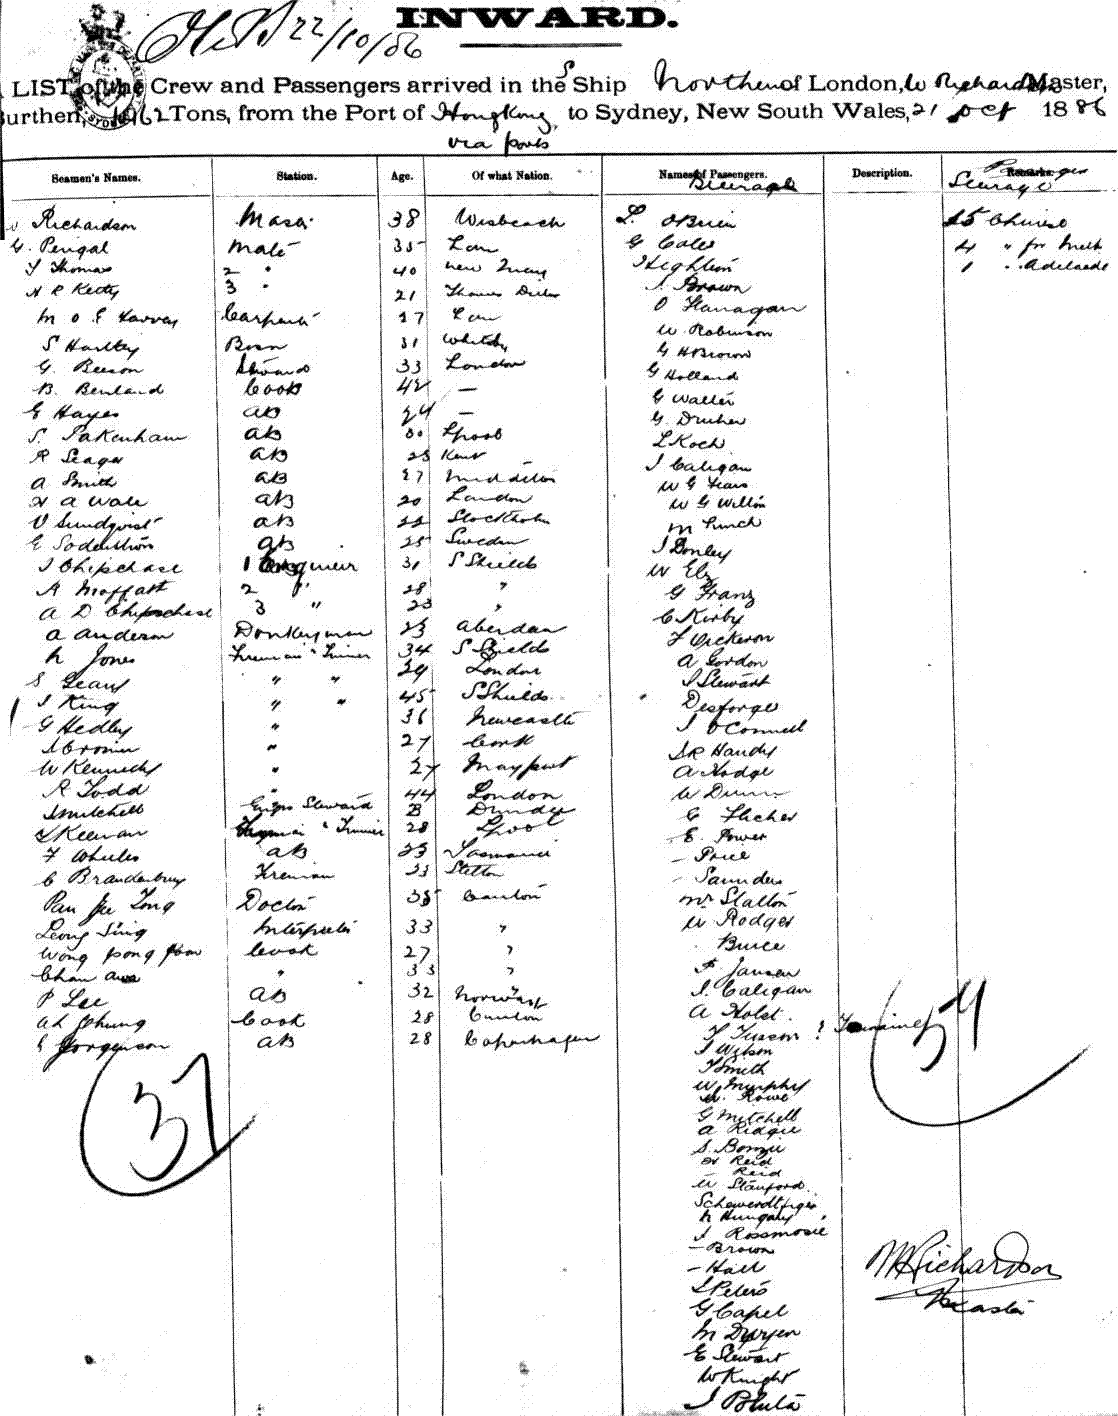 22/10/86
INWARD.
LIST of the Crew and Passengers arrived in the S Ship Northern of London, W Richardson Master,
Burthen, 1062 Tons, from the Port of Hongkong, to Sydney, New South Wales, 21 Oct 1886
via ports
Seamen's Names. Station. Age. Of what Nation. Names of Passengers. Description. Remarks.
Steerage Steerage
Richardson 38 Wisbeach L. OBrien 15 Chinese
G. Perigal Mate 35 Lon G Coles 4 " for Melb
T Thomas 2 " 40 Heighton 1 " Adelaide
H R Ketty 3 " 21 J. Brown
Carpenter 27 Lon O Flanagan
S Hartley Bosn 31 Whitby W Robinson
G. Beeson Steward 33 London G H Brown
B. Benland Cook 42 — G Holland
E Hayes AB 24 — G Walter
S. Pakenham AB 30 Lpool G.
R Seager AB 25 Kent L Koch
A Smith AB 27 J Caligan
H A Wale AB 20 London W G Fears
V Sundqvist AB 22 Stockholm W G Wilton
E Soderstrom AB 25 Sweden M Lynch
J Chipchase 1 Engineer 31 S Shields J Donley
A Moffatt 2 " 28 " W Ely
A D Chipchase 3 " 23 " G Franz
A Anderson Donkeyman 23 Aberdeen C Kirby
N Jones Fireman & Trimmer 34 S Shields F Vickeron
S Geary " " 29 London A Gordon
J King " " 45 S Shields J Stewart
G Hedley " 36 Newcastle Desforge
J Cronin " 27 Cork J O'Connell
W Kennedy " 27 Mayport S R Handy
R Todd " 44 London A Hodge
J Mitchell Engrs Steward Dundee W Dunn
J Keenan Fireman & Trimmer 28 Lpool C
F Wheeler AB 23 Tasmania E. Power
C Brandenburg Fireman 23 Stettin – Price
Pan Doctor 35 Canton – Saunders
Leong Sing Interpreter 33 " Mr Statton
Wong Cook 27 " W Rodger
Chan " 33 " Bruce
P Lee AB 32 Norway F. Jansen
Ah Chung Cook 28 Canton J. Caligan
Jorgenson AB 28 Copenhagen A Holst.
37
J Wilson
T Smith
W Murphy
W. Rowe
G Mitchell
A Ridgie
H Reid
Reid
W Stanford
N Hungary
J Rossmosie
– Brown
– Hall
S Peters
G Capel
M Dwyer
E Stewart
W Knight
W Richardson
Master